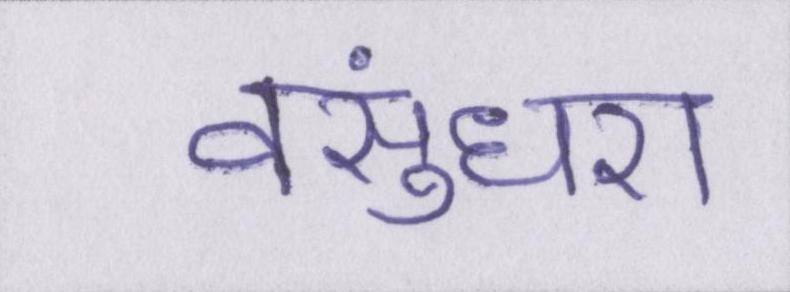 वसुंधरा